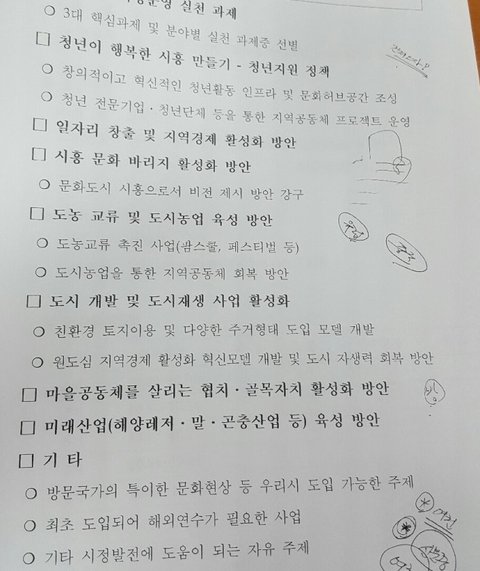 정운영 실천 과제
❍ 3대 핵심과제 및 분야별 실천 과제중 선별
□ 청년이 행복한 시흥 만들기 - 청년지원 정책
❍ 창의적이고 혁신적인 청년활동 인프라 및 문화허브공간 조성
❍ 청년 전문기업·청년단체 등을 통한 지역공동체 프로젝트 운영
□ 일자리 창출 및 지역경제 활성화 방안
□ 시흥 문화 바리지 활성화 방안
❍ 문화도시 시흥으로서 비전 제시 방안 강구
□ 도농 교류 및 도시농업 육성 방안
❍ 도농교류 촉진 사업(팜스쿨, 페스티벌 등)
❍ 도시농업을 통한 지역공동체 회복 방안
□ 도시 개발 및 도시재생 사업 활성화
❍ 친환경 토지이용 및 다양한 주거형태 도입 모델 개발
❍ 원도심 지역경제 활성화 혁신모델 개발 및 도시 자생력 회복 방안
□ 마을공동체를 살리는 협치·골목자치 활성화 방안
□ 미래산업(해양레저·말·곤충산업 등) 육성 방안
□ 기 타
❍ 방문국가의 특이한 문화현상 등 우리시 도입 가능한 주제
❍ 최초 도입되어 해외연수가 필요한 사업
❍ 기타 시정발전에 도움이 되는 자유 주제